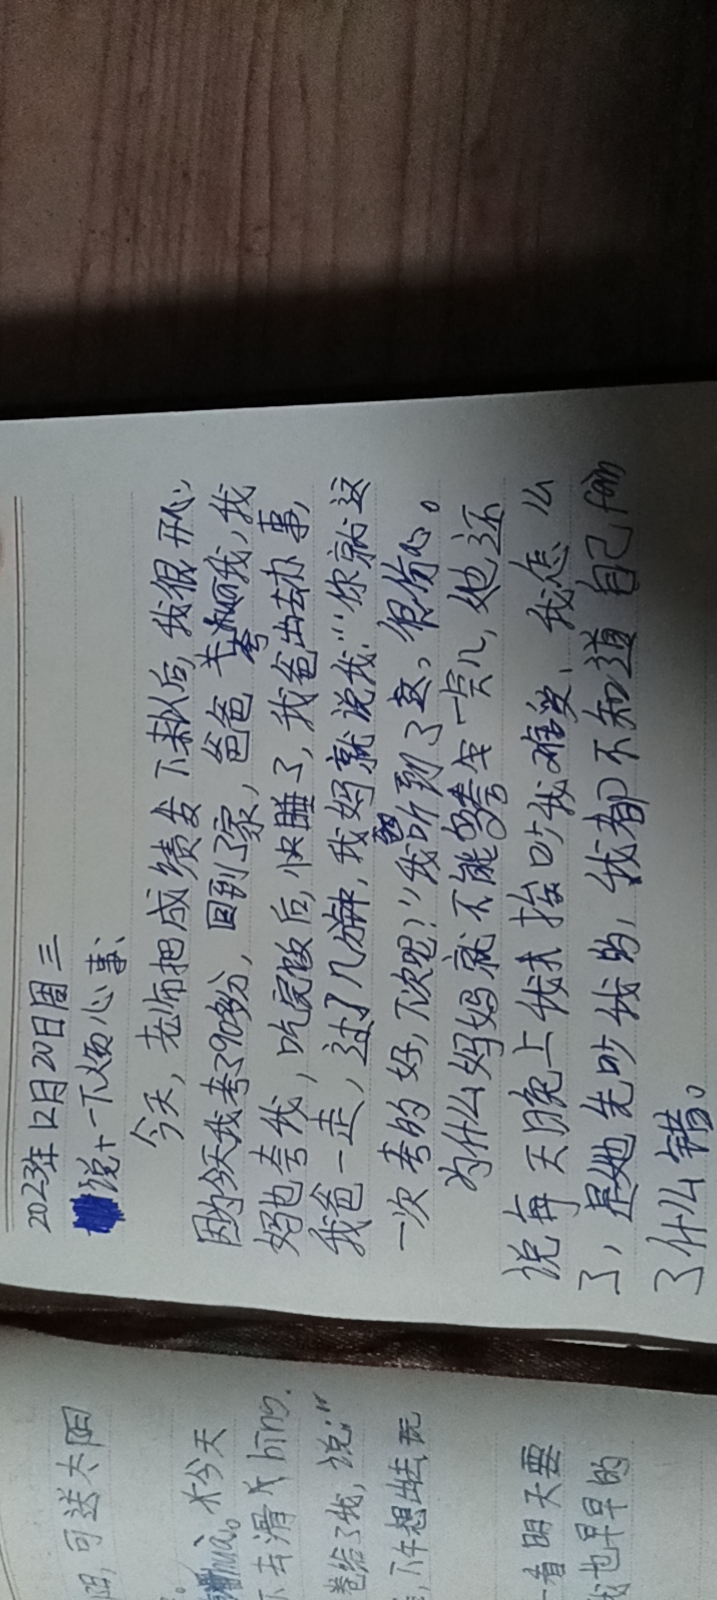 2023年12月20日周三
说十一下烦心事、
今天，老师把成绩发下来以后，我很开心，
因为今天我考了90多分，回到了家，爸爸夸我，我
妈也夸我，吃完饭后，快睡了，我爸出去办事，
我爸一走，过了几分钟，我妈就说我：“你就这
一次考的好，下次吧！”我听到了这。很伤心。
为什么妈妈就不能多夸一会儿，她还
说每天晚上我来挨吵我难受、我怎么
了，是她先吵我的，我都不知道自己fàn
了什么错。
阳，可送太阳
huà。木今天
下去滑氷bīng.
卷给了我，说：“
，下午想出去玩
着明天要
我也早早的